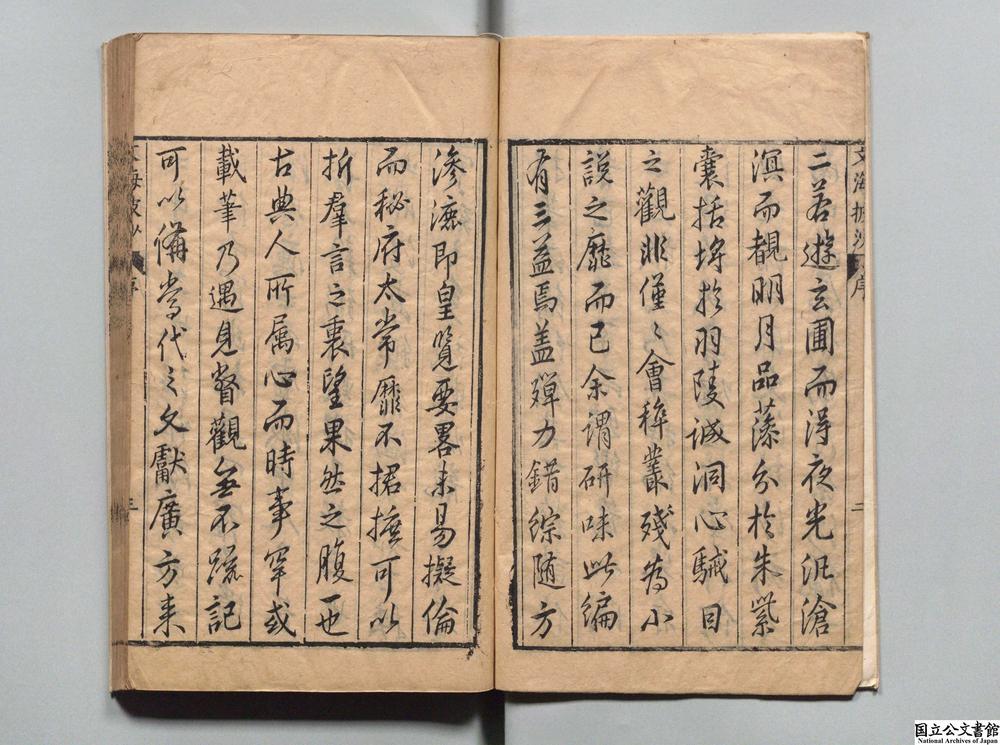 二若遊玄圃而淂夜光汎滄
溟而覩明月品藻分於朱紫
囊括埒於羽陵誠洞心駴目
之觀非僅〻會稡叢殘為小
說之靡而已余谓研味此編
有三益焉盖殫力錯綜随方
滲漉即皇覽要畧未易擬倫
而秘府太常靡不捃摭可以
折羣言之衷望果然之腹一也
古典人所属心而時事罕或
載筆乃遇見督觀無不疏記
可以備當代之文獻廣方来
文海披沙 序
二
三
国立公文書館
National Archives of Japan